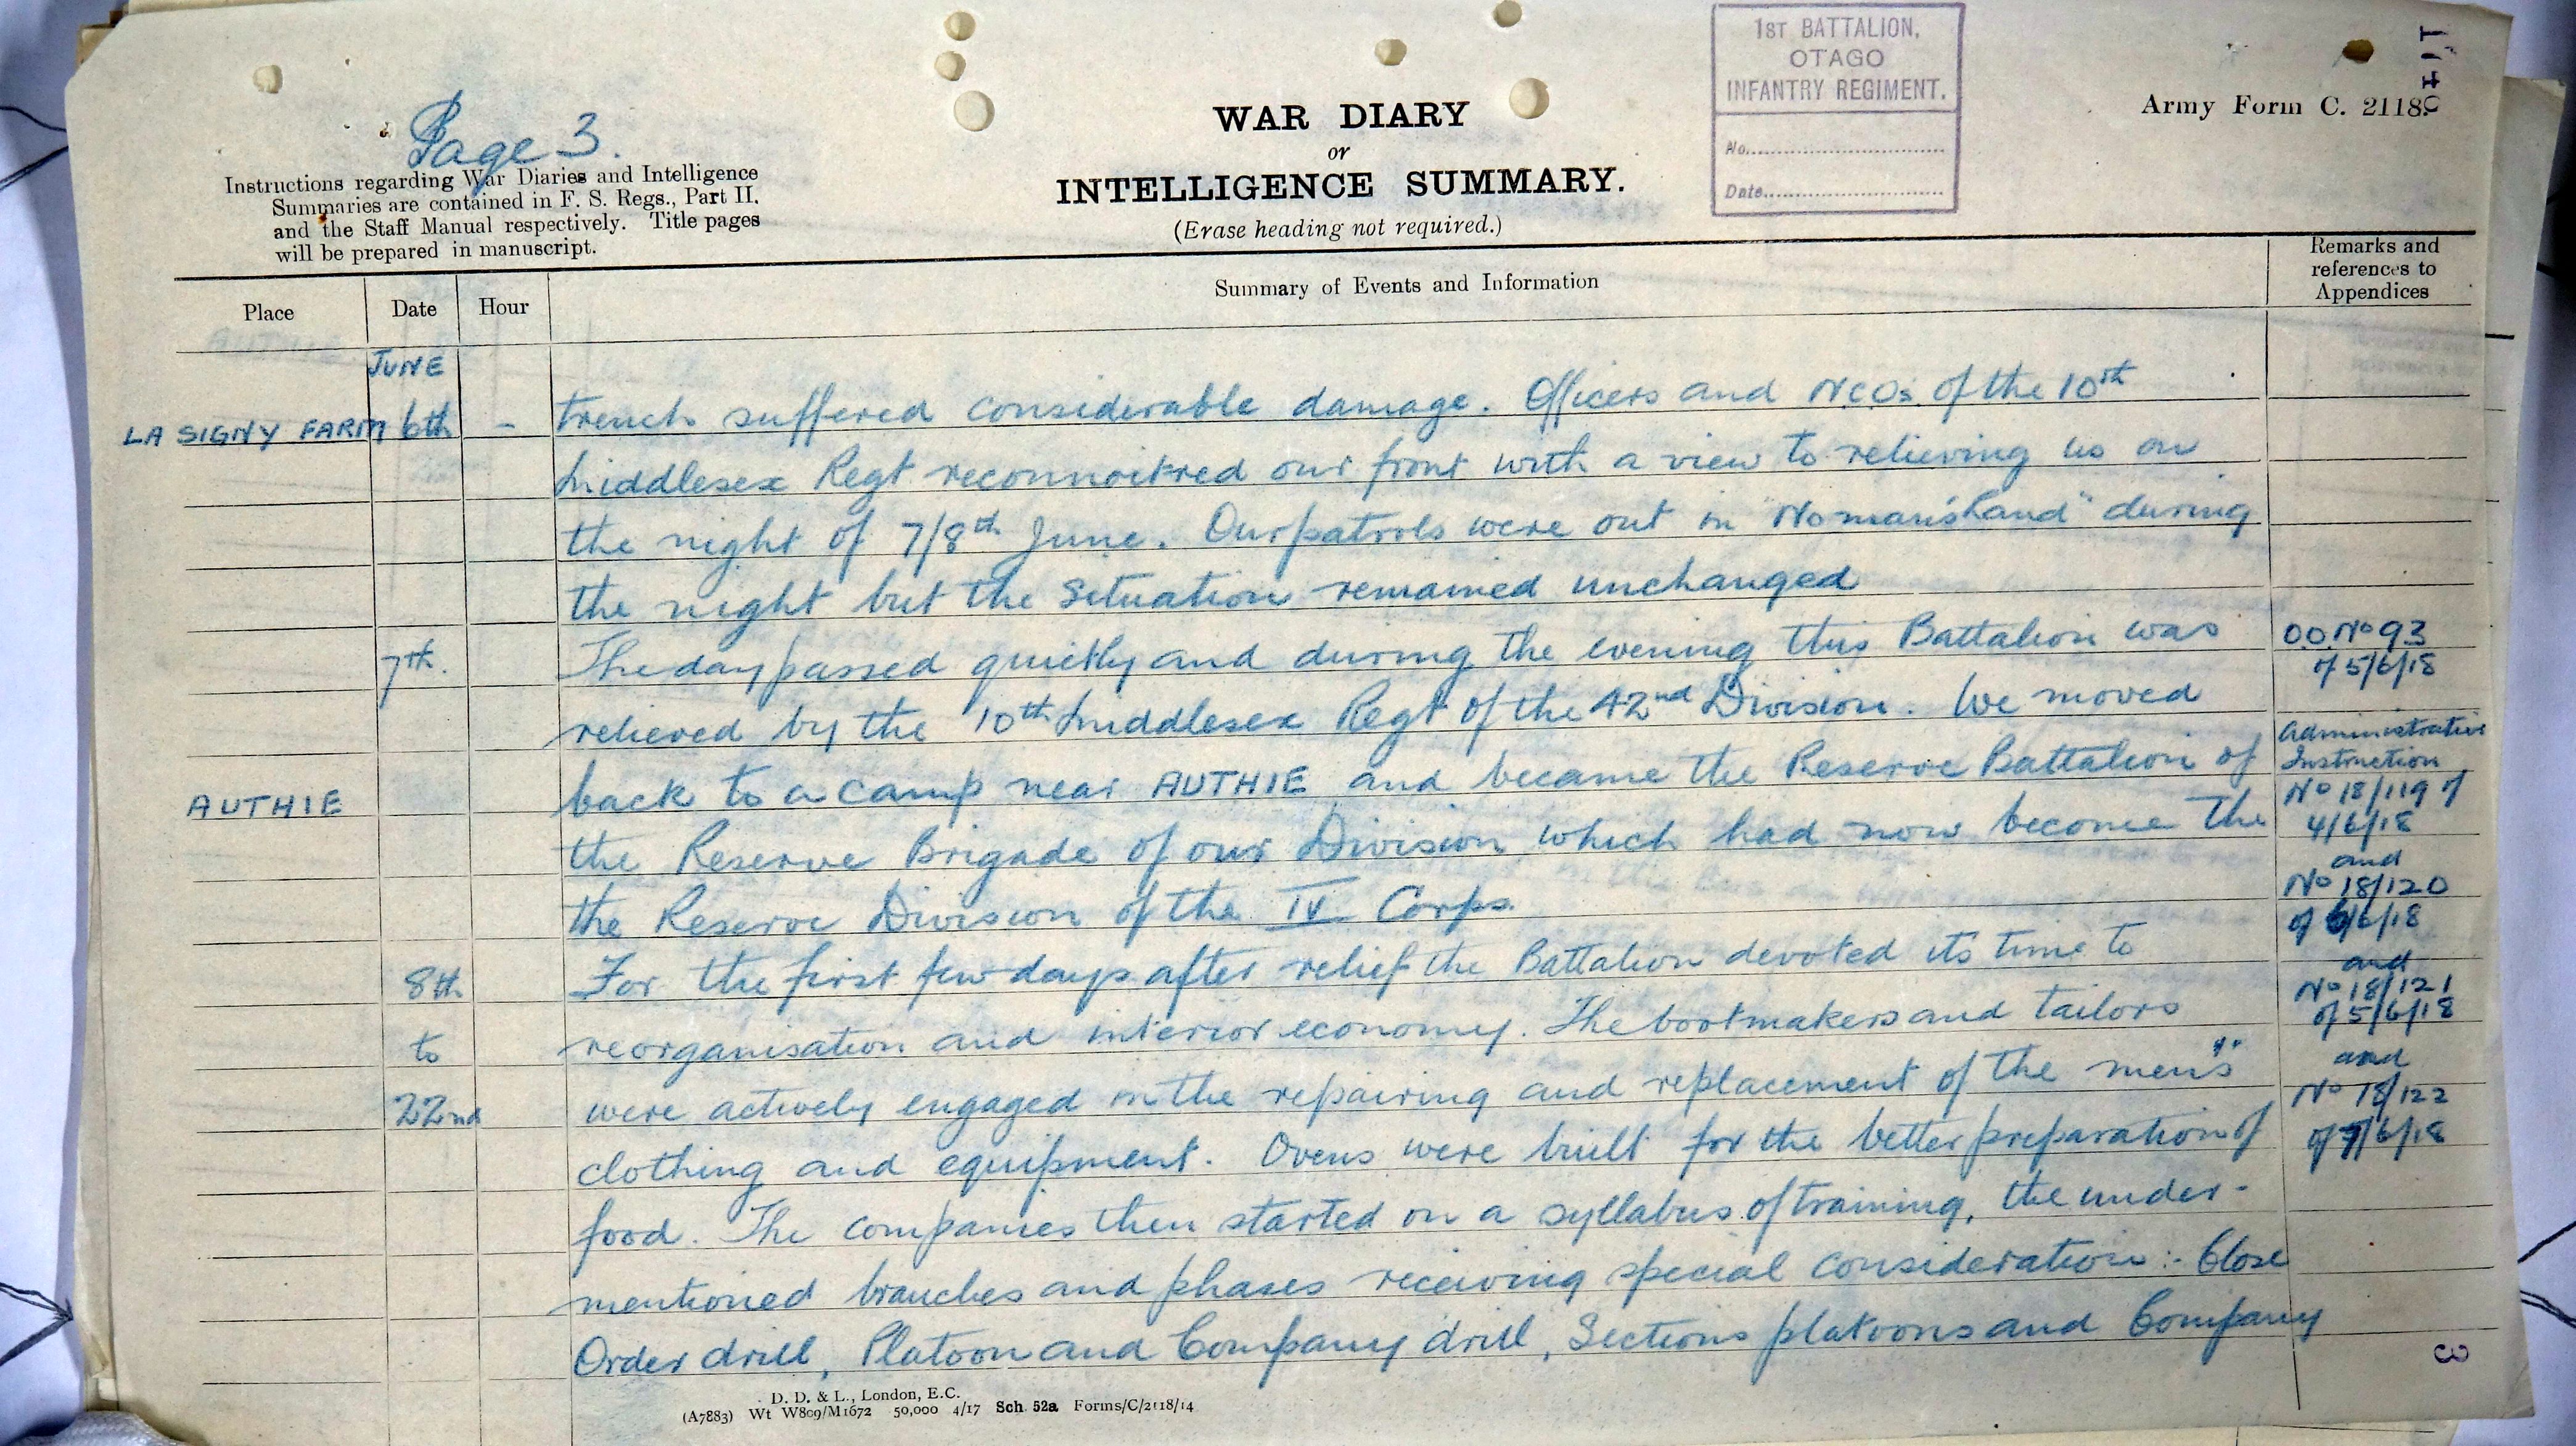 Page 3.
Instructions regarding War Diaries and Intelligence
Summaries are contained in F. S. Regs., Part II.
and the Staff Manual respectively. Title pages
will be prepared in manuscript.
WAR DIARY
or
INTELLIGENCE SUMMARY.
(Erase heading not required.)
1ST BATTALION,
OTAGO
INFANTRY REGIMENT.
No.
Date
Army Form C. 2118.
Place
Date
Hour
Summary of Events and Information
Remarks and
references to
Appendices
JUNE
LA SIGNY FARM 6th - trench suffered considerable damage. Officers and N.C.Os. of the 10th
Middlesex Regt reconnoitred our front with a view to relieving us on
the night of 7/8th June. Our patrols were out in "No man's Land" during
the night but the situation remained unchanged
7th. The day passed quietly and during the evening this Battalion was
relieved by the 10th Middlesex Regt of the 42nd Division. We moved
AUTHIE back to a camp near AUTHIE and became the Reserve Battalion of
the Reserve Brigade of our Division which had now become the
the Reserve Division of the IV Corps.
8th For the first few days after relief the Battalion devoted its time to
to reorganisation and interior economy. The bootmakers and tailors
22nd were actively engaged on the repairing and replacement of the men's
clothing and equipment. Ovens were built for the better preparation of
food. The companies then started on a syllabus of training, the under-
mentioned branches and phases receiving special consideration:- Close
Order drill, Platoon and Company drill, Sections platoons and Company
OO. No 93
of 5/6/18
Administrative
Instruction
No 18/119 of
4/6/18
and
No 18/120
of 6/6/18
and
No 18/121
of 5/6/18
and
No 18/122
of 7/6/18
3
D. D. & L., London, E.C.
(A7883) Wt W809/M1672 50,000 4/17 Sch. 52a Forms/C/2118/14